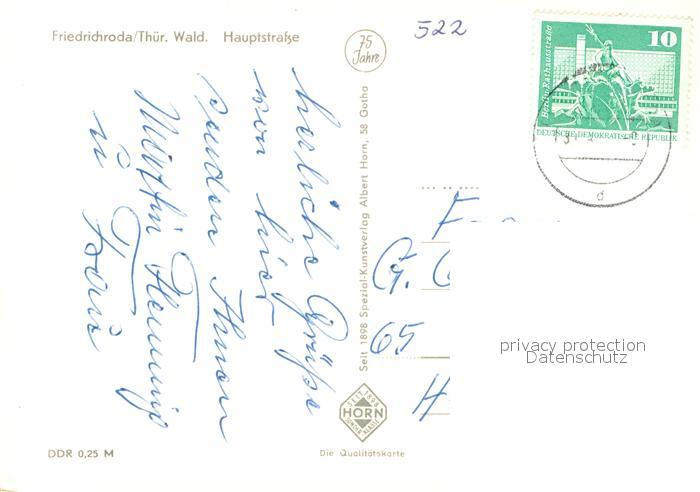 Friedrichroda/Thür. Wald. Hauptstraße
75
Jahre
522
10
Berlin, Rathausstraße
DEUTSCHE DEMOKRATISCHE REPUBLIK
herzliche Grüße
von hier
senden Ihnen
Flemming
u.
Seit 1898 Spezial-Kunstverlag Albert Horn, 58 Gotha
F
G.
65
H
privacy protection
Datenschutz
SEIT 1898
HORN
DDR 0,25 M
Die Qualitätskarte